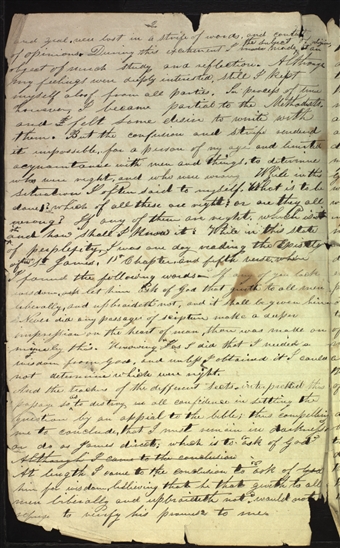 2
and zeal, were lost in a strife of words, and contests
of opinions. During this excitement I the subject of religion
object of much study and reflection. Although
my feelings were deeply interested, still I kept
myself aloof from all parties. In process of time
however, I became partial to the Methodists
and I felt some desire to unite with
them. But the confusion and strife rendered
it impossible, for a person of my age and limited
acquaintance with men and things, to determine
who were right, and who were wrong. While in this
situation I often said to myself What is to be
done? which of all these are right? or are they all
wrong? If any of them are right, which is it
and how shall I know it? While in this state
of perplexity, I was one day reading the Epistle
of St James, 1st Chapter and fifth verse, when
I found the following words. If any of you lack
wisdom, let him ask of God that giveth to all men
liberally, and upbraideth not, and it shall be given him
Never did any passage of scripture make a deeper
impression on the heart of man, than was made on
mine by this. Knowing as I did that I needed
wisdom from God, and unless I obtained it I could
not determine which were right.
And the teachers of the different Sects interpreted this
passage so as to destroy all confidence in settling the
question by an appeal to the bible, thus compelling
me to conclude, that I must remain in darkness
or do as James directs, which is to ask of God
Although I came to the conclusion
At length I came to the conclusion to ask of God
him for wisdom, believing that he that giveth to all
men liberally and upbraideth not, would not
refuse to verify his promise to me